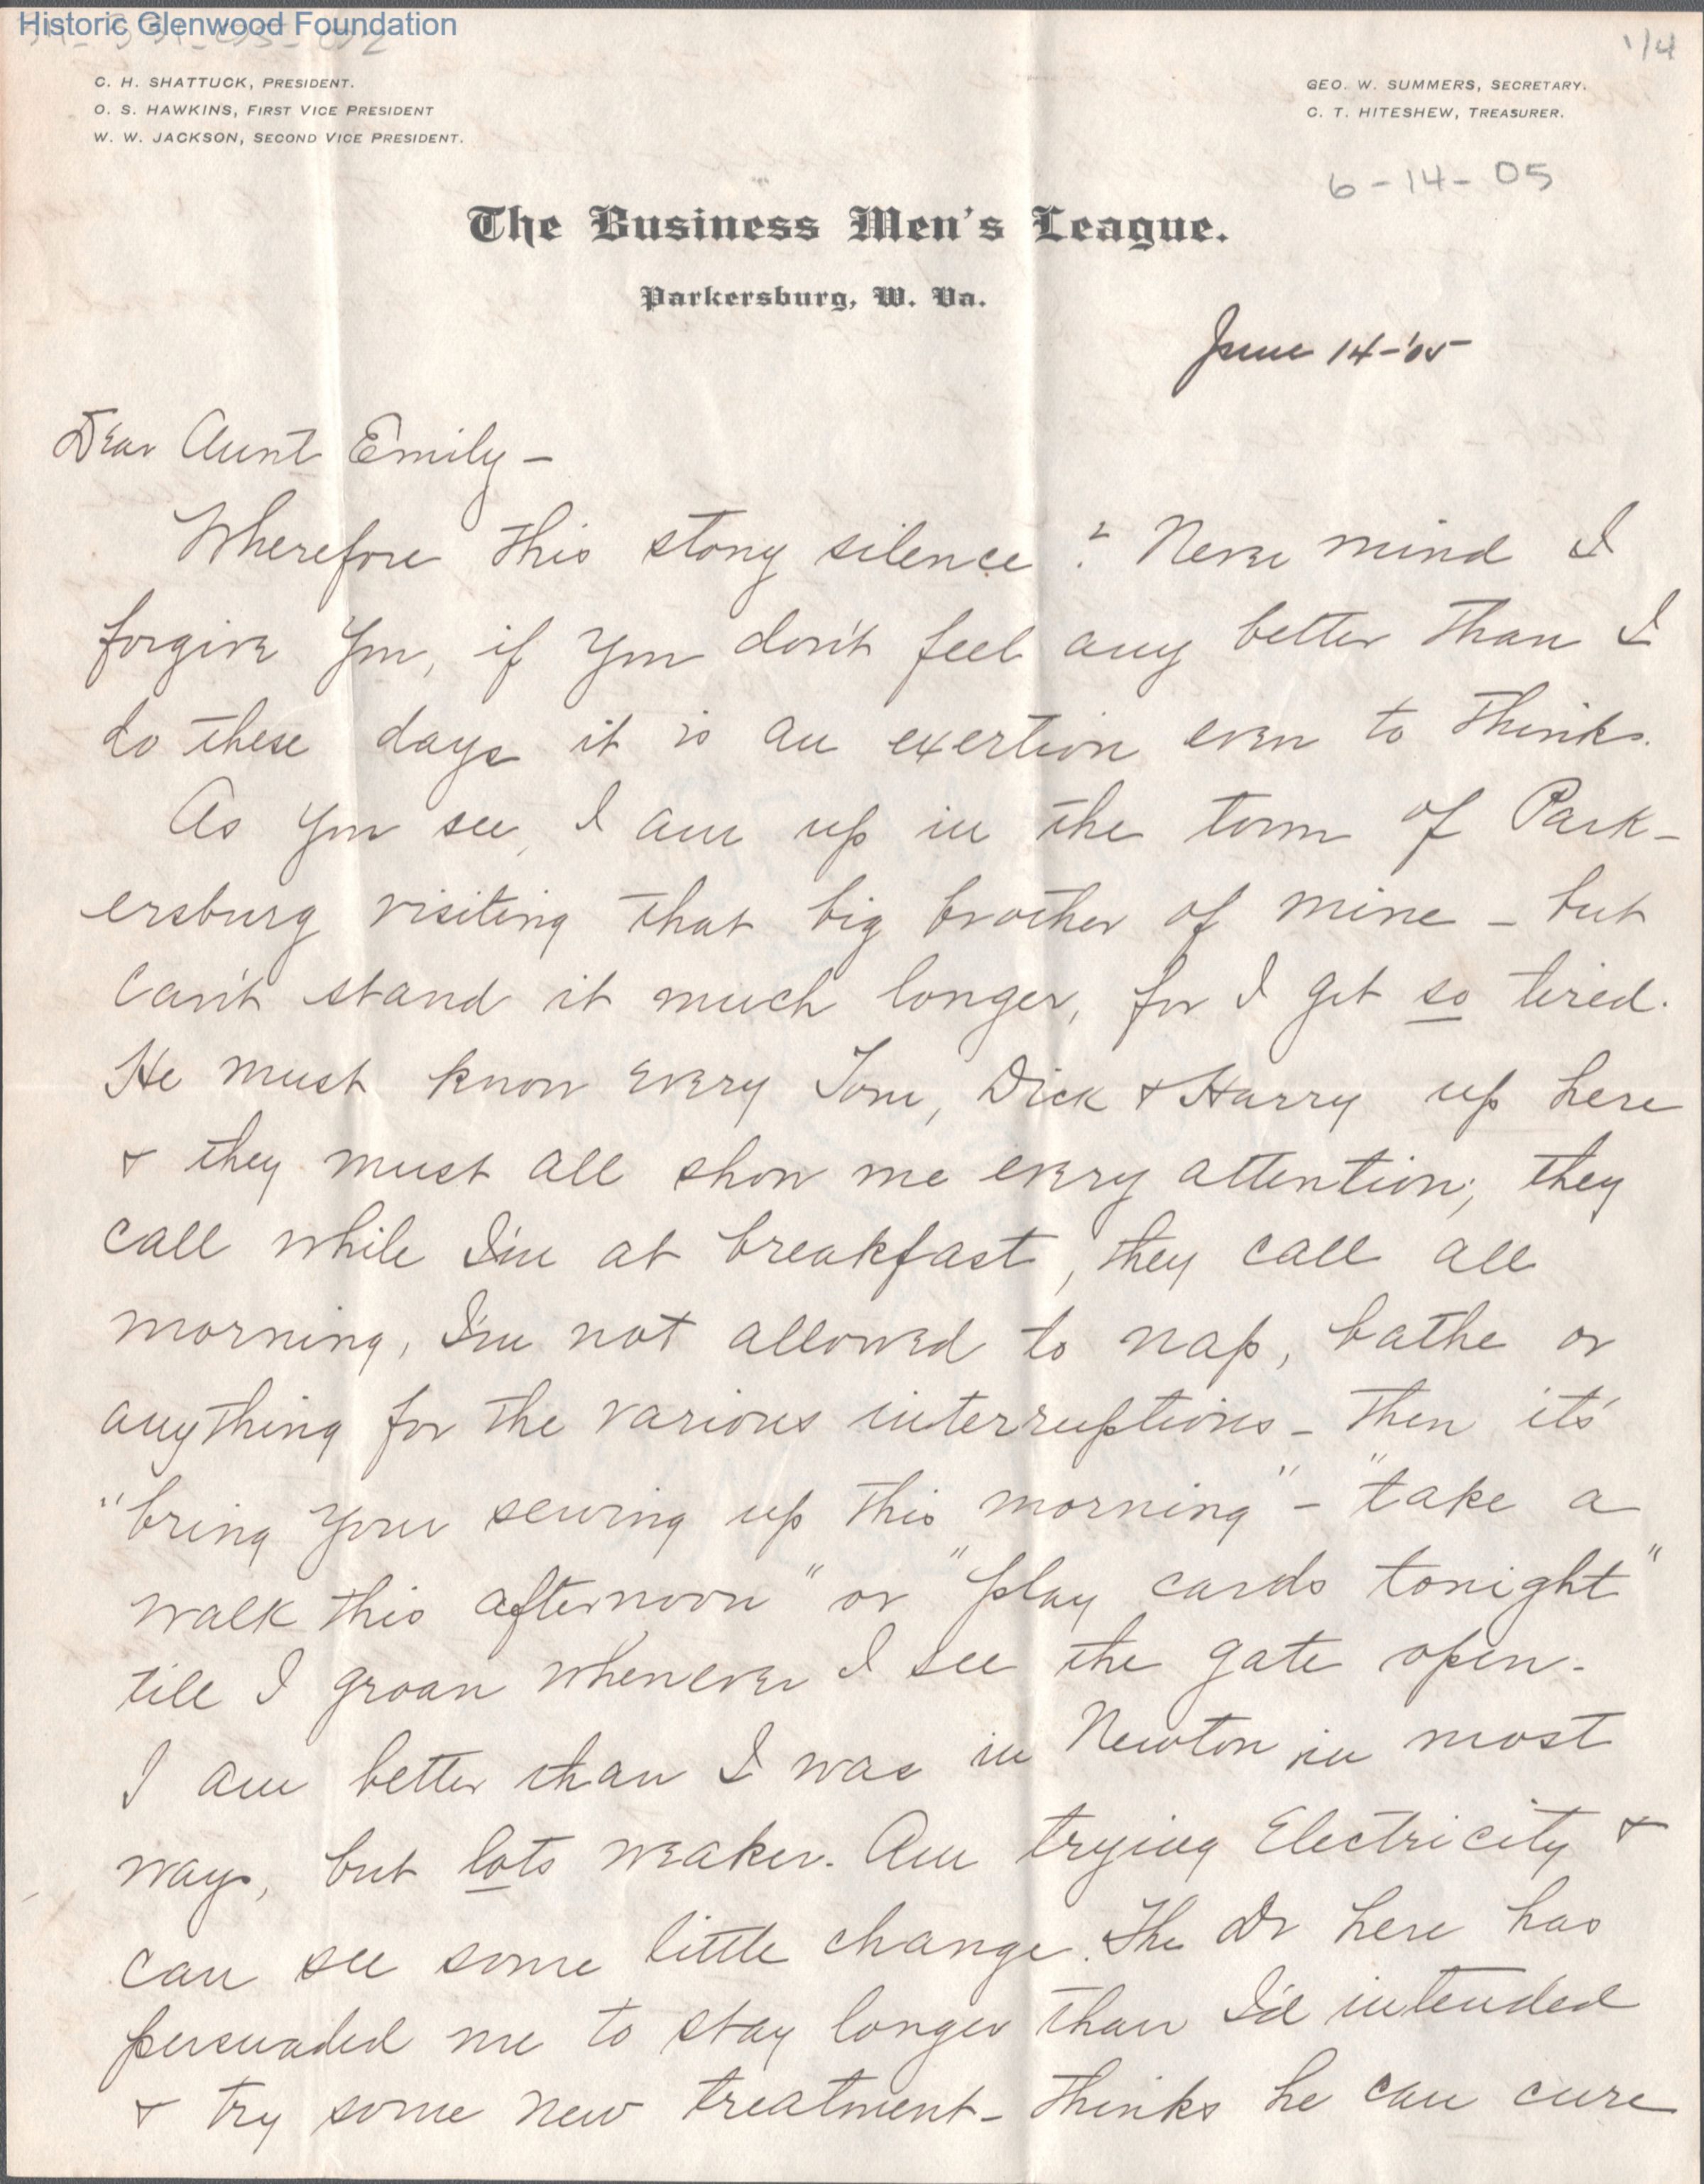 Historic Glenwood Foundation
1/4
C. H. SHATTUCK, PRESIDENT.
O. S. HAWKINS, FIRST VICE PRESIDENT
W. W. JACKSON, SECOND VICE PRESIDENT.
GEO. W. SUMMERS, SECRETARY.
C. T. HITESHEW, TREASURER.
6-14-05
The Business Men's League.
Parkersburg, W. Va.
June 14-'05
Dear Aunt Emily -
Wherefore this stony silence? Never mind I
forgive you, if you don't feel any better than I
do these days it is an exertion even to think.
As you see, I am up in the town of Park-
ersburg visiting that big brother of mine - but
can't stand it much longer, for I get so tired.
He must know every Tom, Dick & Harry up here
& they must all show me every attention; they
call while I'm at breakfast, they call all
morning, I'm not allowed to nap, bathe or
anything for the various interruptions - then it's
"bring your sewing up this morning" - "take a
walk this afternoon" or "play cards tonight"
till I groan whenever I see the gate open.
I am better than I was in Newton in most
ways, but lots weaker. Am trying Electricity &
can see some little change. The Dr here has
persuaded me to stay longer than I'd intended
& try some new treatment - thinks he can cure